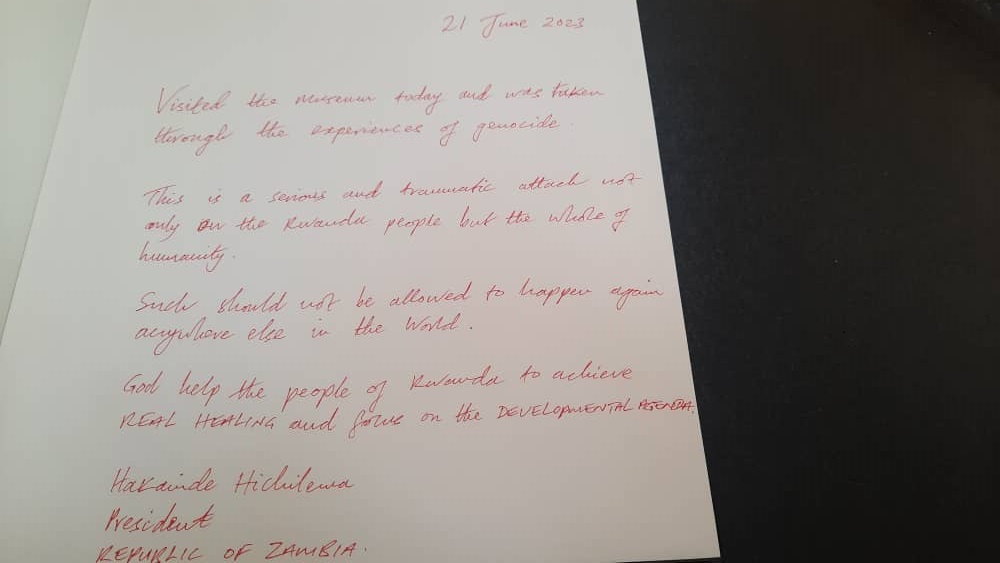 21 June 2023
Visited the museum today and was taken
through the experiences of genocide.
This is a serious and traumatic attack not
only on the Rwanda people but the whole of
humanity.
Such should not be allowed to happen again
anywhere else in the World.
God help the people of Rwanda to achieve
REAL HEALING and focus on the DEVELOPMENTAL AGENDA.
Hakainde Hichilema
President
REPUBLIC OF ZAMBIA.